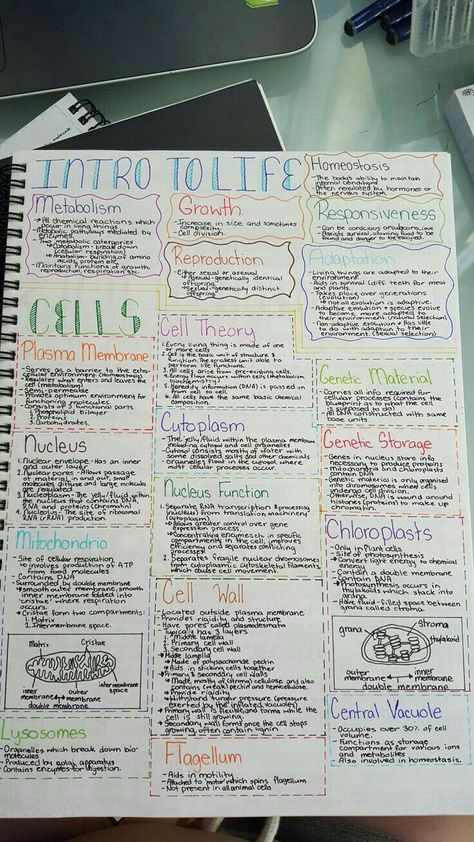 INTRO TO LIFE
Homeostasis
- The body's ability to maintain
internal conditions
- Often regulated by hormones or
the nervous system.
Metabolism
→ All chemical reactions which
occur in living things
- Metabolic pathways mediated by
enzymes.
- Two metabolic catergories
→ Catabolism: break down
(cellular respiration)
→ Anabolism: building of amino
acids, protein etc.
- Maintains functions of growth
reproduction, respiration etc.
Growth
- Increase in size and sometimes
complexity.
- Cell division.
Responsiveness
- Can be conscious or subconscious
- Sensory allowing food to be
found and danger to be escaped
Reproduction
- Either sexual or asexual
→ Asexual = genetically identical
offspring
→ Sexual = genetically distinct
offspring
Adaptation
- Living things are adapted to their
environment.
- Aids in survival (diff teeth for meat
and plants.
- Takes place over generations
(evolution)
→ Not all evolution is adaptive.
- Adaptive evolution = species evolve
to become more adapted to
their environment (natural selection)
- Non-adaptive evolution = Has little
to do with adaption to the
environment (sexual selection)
CELLS
Cell Theory
1. Every living thing is made of one
or more cells
2. Cell is the basic unit of structure &
function. The smallest unit able to
perform life functions.
3. All cells arise from pre-existing cells.
4. Energy flow occurs in cells (metabolism,
biochemistry)
5. Heredity information (DNA) is passed on
from cell to cell
6. All cells have the same basic chemical
composition.
Plasma Membrane
- Serves as a barrier to the extra-
cellular environment (homeostasis)
- Regulates what enters and leaves the
cell (metabolism)
- Semi-permeable
- Provides optimum environment for
functioning molecules
- Consists of 3 functional parts
1. Phospholipid Bilayer
2. Proteins
3. Carbohydrates.
Genetic Material
- Carries all info required for
cellular processes (contains the
blueprint as to what the cell
is supposed to do)
- All DNA constructed with same
base units
Nucleus
1. Nuclear envelope - Has an inner
and outer layer
2. Nuclear pores - Allows passage
of material in and out, small
molecules diffuse and large molecules
are regulated
3. Nucleoplasm - The jelly/fluid within
the nucleus that contains DNA,
RNA and proteins (chromatin)
4. Nucleolus - The site of ribosomal
RNA (rRNA) production
Cytoplasm
- The jelly/fluid within the plasma membrane
including cytosol and cell organelles
- Cytosol consists mostly of water with
some dissolved salts and other chemicals
- Organelles float in the cytosol where
most cellular processes occur.
Genetic Storage
- Genes in nucleus store info
necessary to produce proteins
- Mitochondria and chloroplasts
contain DNA
- Genetic material is only organised
into chromosomes where cells
undergo cell division.
- Otherwise, DNA is wound around
histones (proteins) to make up
chromatin.
Nucleus Function
1. Separate RNA transcription & processing
(nucleus) from translation machinery
(cytoplasm)
→ Allows greater control over gene
expression process.
→ Concentrating enzymes in specific
compartments in the cell, improves
efficiency and separates conflicting
processes
2. Separates fragile nuclear chromosomes
from cytoplasmic cytoskeletal filaments
which cause movement.
Mitochondria
- Site of cellular respiration
↳ involves production of ATP
from food molecules
- Contains DNA
- Surrounded by double membrane
→ Smooth outer membrane, smooth
inner membrane folded into
'cristae' where respiration
occurs
- Cristae form two compartments:
1. Matrix
2. Intermembrane space.
Matrix
Cristae
inner membrane
outer membrane
intermembrane space
double membrane
Chloroplasts
- Only in Plant cells
- Site of photosynthesis
→ Convert light energy to chemical
energy.
- Contain a double membrane
- Contain DNA
- Photosynthesis occurs in
thylakoids which stack into
grana.
- Have fluid-filled space between
grana called stroma.
grana
stroma
thylakoid
outer membrane
inner membrane
double membrane
Cell Wall
- Located outside plasma membrane
- Provides rigidity and structure
- Have pores called plasmodesmata
- Typically has 3 layers
1. Middle lamella
2. Primary cell wall
3. Secondary cell wall
→ Middle lamella
→ Made of polysaccharide pectin
→ Aids in sticking cells together
→ Primary & secondary cell walls
→ Made mostly of (strong) cellulose and also
contains (weak) pectin and hemicellulose.
→ Provide rigidity
→ Withstand turgor pressure (pressure
exerted by the inflated vacuole)
→ Primary wall is flexible and forms while the
cell is still growing.
→ Secondary wall forms once the cell stops
growing, often contain lignin
Lysosomes
- Organelles which break down bio-
molecules
- Produced by golgi apparatus
- Contains enzymes for digestion.
Flagellum
- Aids in motility
- Attached to motor which spins flagellum
- Not present in all animal cells
Central Vacuole
- Occupies over 30% of cell
volume.
- Functions as storage
compartment for various ions
and metabolites
- Also involved in homeostasis.